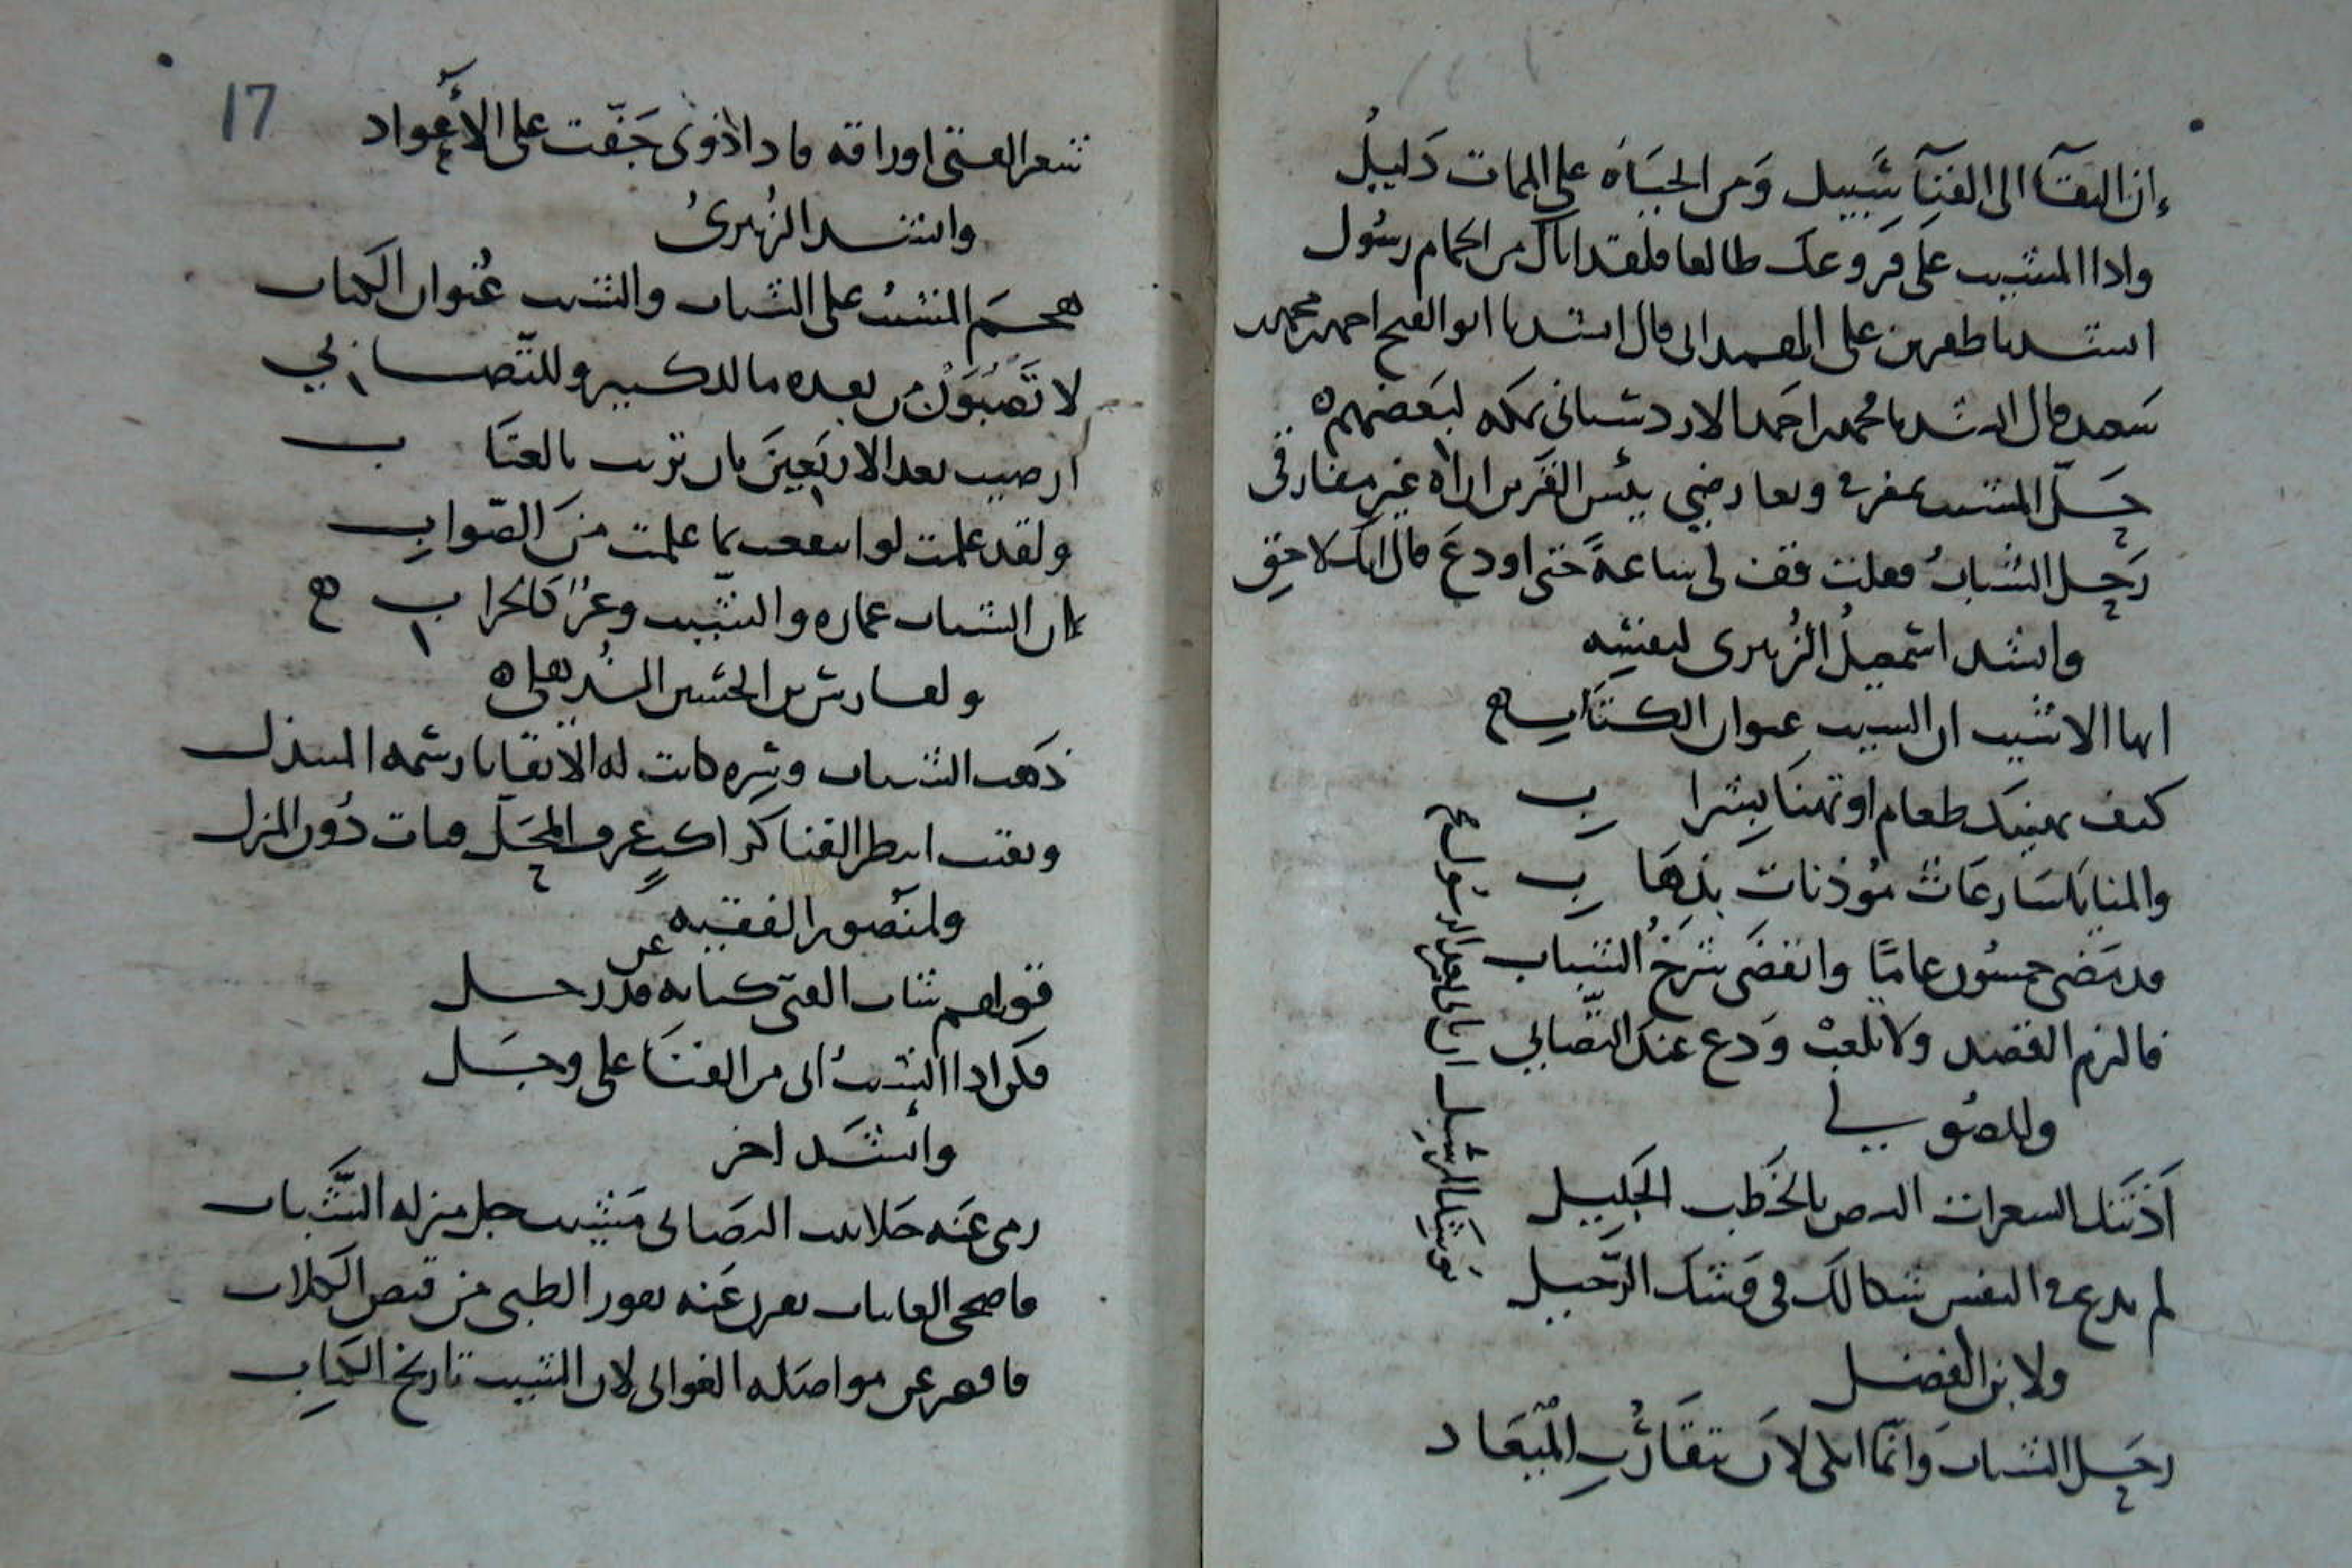 إن البقآ الى الفنآ سَبيل وَمن الحيَاة على الممات دَليلُ
واذا المشيب على فروعك طالعا فلقد اتاك من الحمام رسُول
انشدنا طفر بن على الهمدانى قال انشدنا ابو الفتح احمد بن محمد
سَعيد قال انشدنا محمد بن احمد الاردشتانى بمكه لبَعضهم ه
حَلّ المشيب بمفرقى وبعارضي بئس القرين اراه غير مفارقى
رَحل الشباب فقلت قف لى ساعةً حتى اودعَ قال انك لاحِق
وانشد اسمعيلُ الزُهرى لنفسِه
ايها الاشيب ان الشيب عنوان الكتَاب
كيف يهنيك طعام او تهنَا بِشراب
والمنايا مسَارعَاتٌ مؤذنات بذهَاب
قد مَضى خمسُون عامًا وانقضَى شرخُ الشباب
فالزم القصد ولا تلعبْ وَدع عنك التّصابي
وللصُوري
آذَنَتكَ الشعرات البيض بالخَطب الجَليل
لم يدع فى النفس شكا لكَ فى وَشك الرّحيل
ولابن الفضل
رحَل الشباب وَانّما ابكى لان يتقَارُب المِيعَاد
17
شعر الفتى اوراقه فاذا ذوى جَفّت على الأعواد
وانشد الزُهرىُ
هجمَ المشيبُ على الشباب والشيب عُنوان الكتاب
لا تَصْبُوَنْ من بعده ما للكبير وللتّصابي
ارضيت بعد الاربَعينَ بان تزيت بالعتَاب
ولقد علمت لو انتفعت بما علمت منَ الصّوابِ
ان الشباب عماره والشيب وعرٌ كالخراب
ولفارس بن الحسين الشُهرلى ه
ذهَب الشباب وشره كانت له الا بقايا رسمه المبتذل
وبقيت انتظر الفنا كراكبٍ عرف المحَل فبات دُون المنزل
ولمنصُور الفقيه
قوى هم شباب الفتى كنايه عن قد رحل
فكن اذا الشيبُ اتى من الفنَا على وجَل
وانشَد اخر
رمى عَنه جلابيب التصَابى مَشيب حل منزله الشّبَاب
فاضحى الغانيات نفرن عَنه نفور الظبى من قنص الكلاب
فاقصر عن مواصَله الغوانى لان الشيب تاريخ الكتابِ